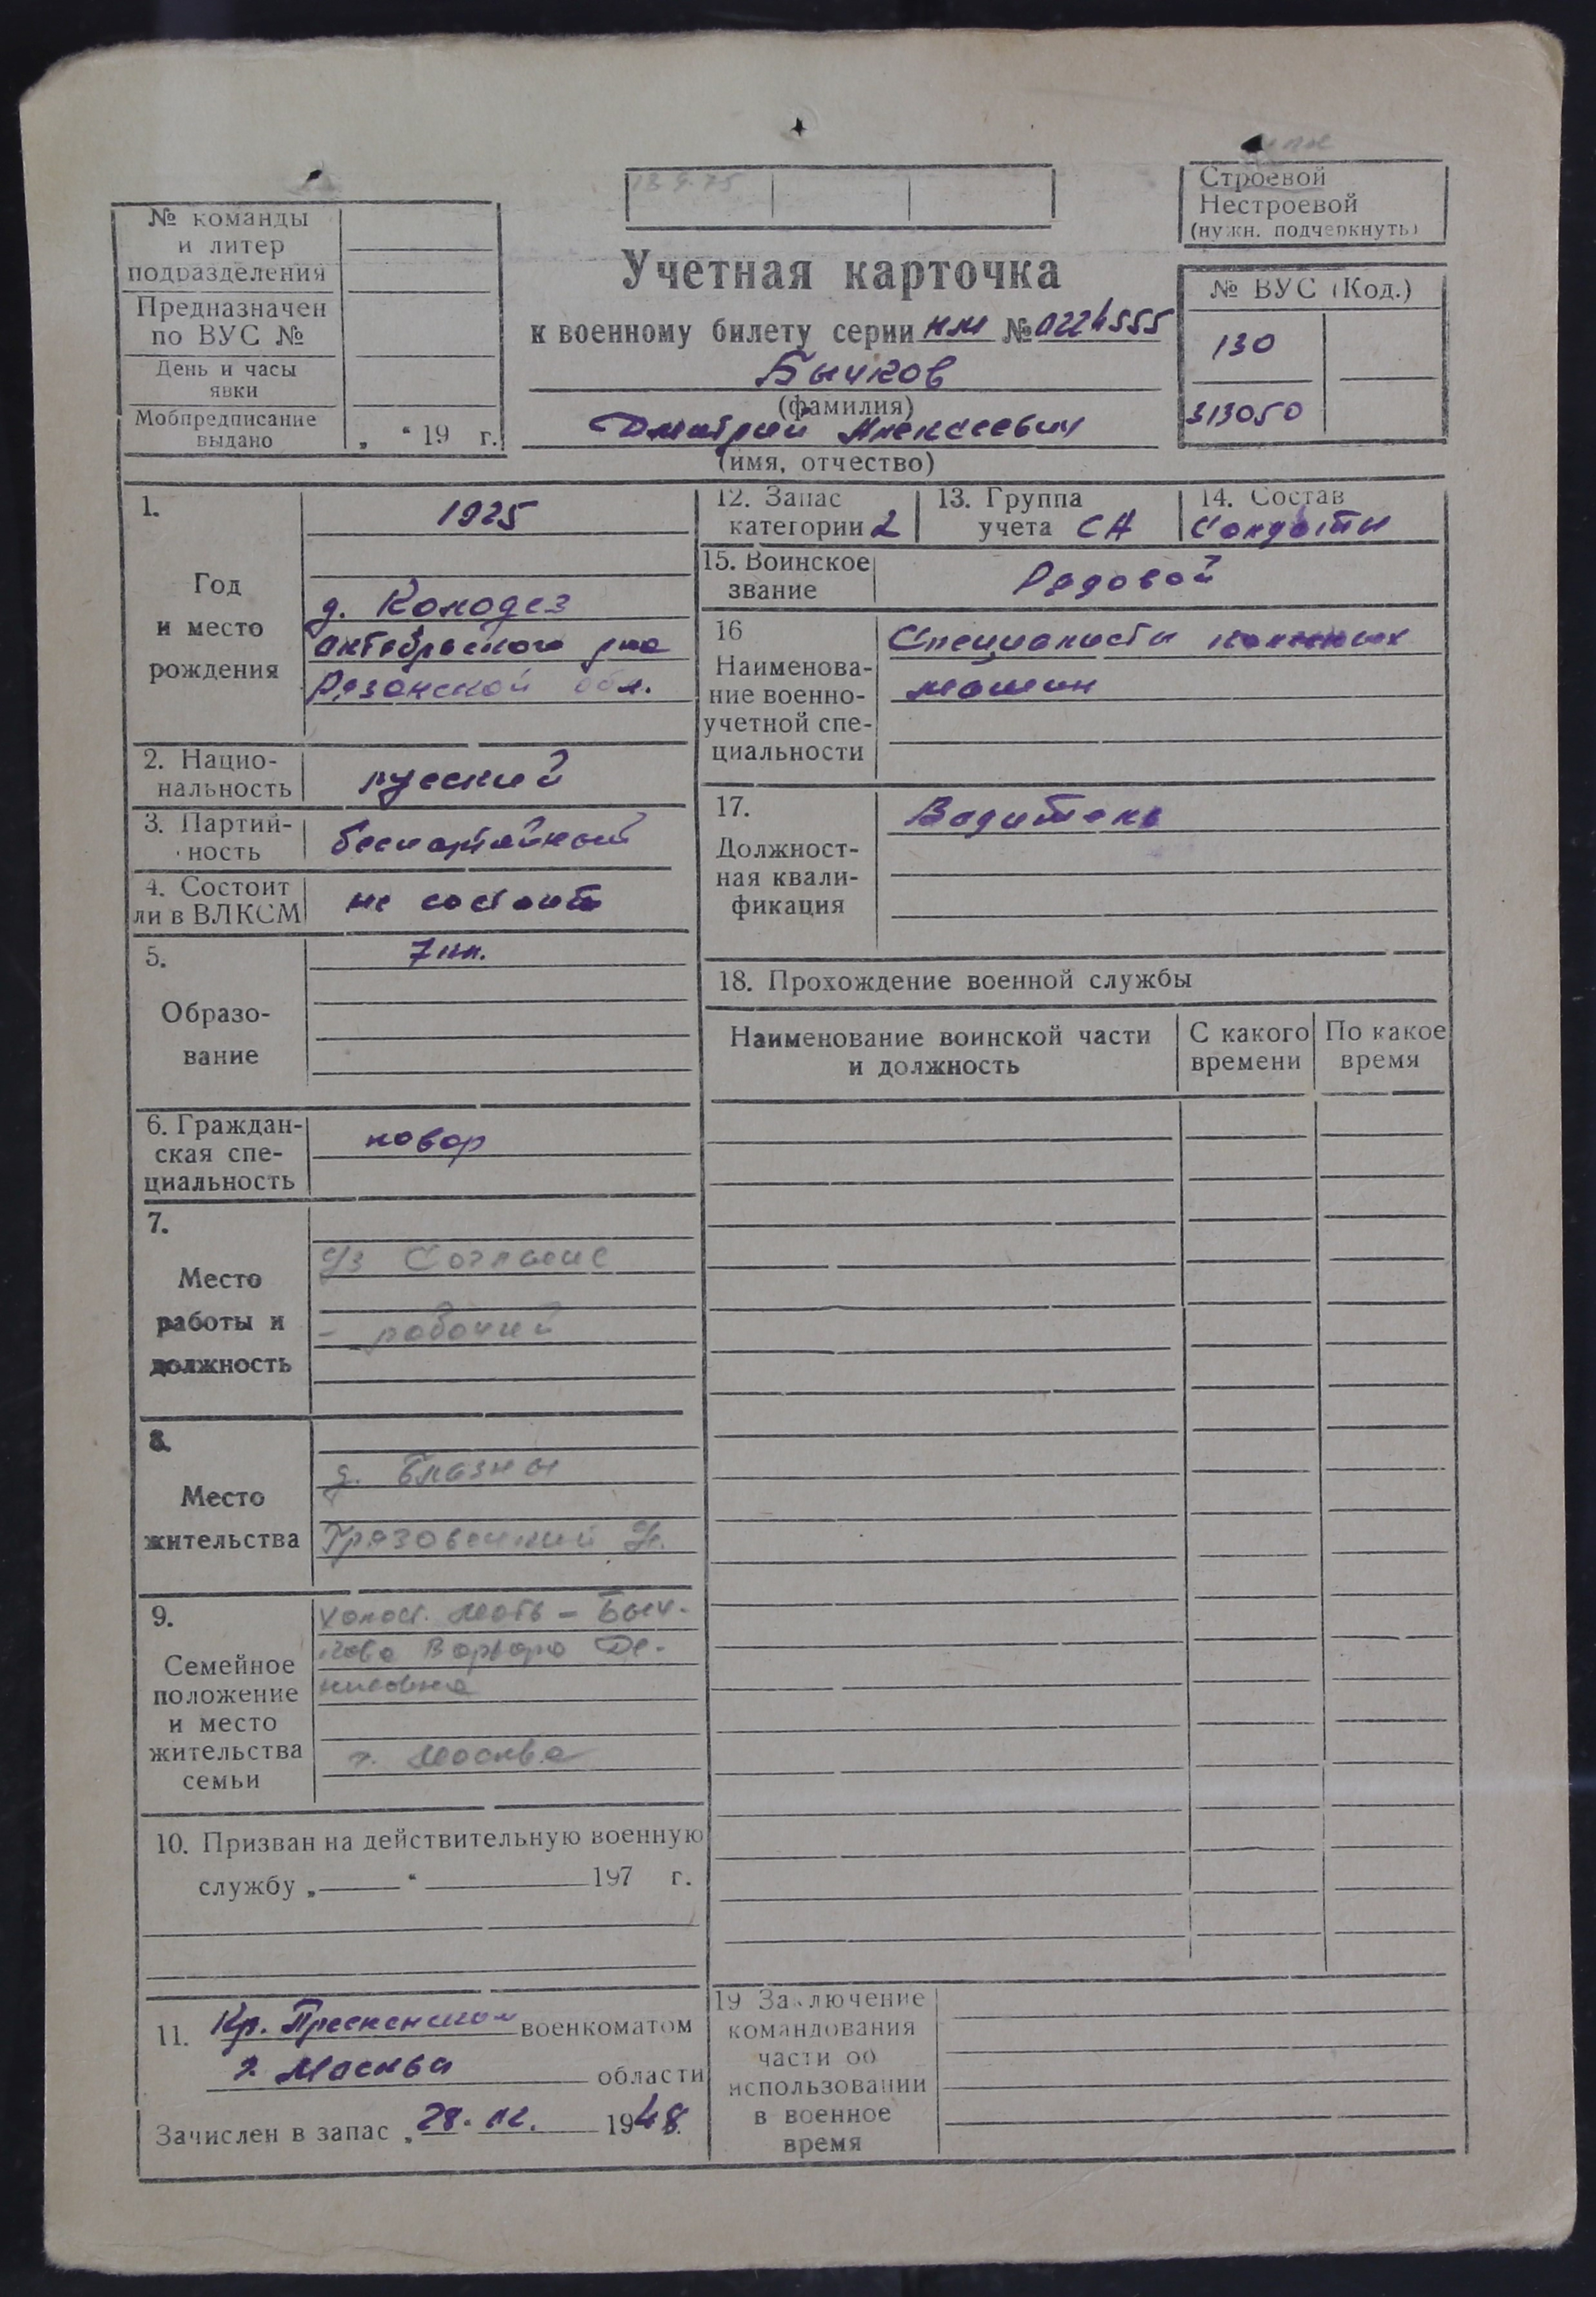 13.9.75
Строевой
Нестроевой
(нужн. подчеркнуть)
№ команды
и литер
подразделения
Предназначен
по ВУС №
День и часы
явки
Мобпредписание
выдано „ “ 19 г.
Учетная карточка
к военному билету серии НМ № 0224555
Бычков
(фамилия)
Дмитрий Алексеевич
(имя, отчество)
№ ВУС (Код.)
130
313050
1.
Год
и место
рождения
1925
д. Колодез
Октебрьского р-на
Рязанской обл.
2. Нацио-
нальность
русский
3. Партий-
ность
беспартийный
4. Состоит
ли в ВЛКСМ
не состоит
5.
Образо-
вание
7 кл.
6. Граждан-
ская спе-
циальность
повар
7.
Место
работы и
должность
Согласие
- рабочий
8.
Место
жительства
д. Блазны
Грязовецкий
9.
Семейное
положение
и место
жительства
семьи
холост. Мать - Быч-
кова Варвара Де-
нисовна
г. Москва
10. Призван на действительную военную
службу „ “ 197 г.
11. Кр. Пресненским военкоматом
г. Москва области
Зачислен в запас „28. 12. 1948
12. Запас
категории 2
13. Группа
учета СА
14. Состав
Солдаты
15. Воинское
звание
Рядовой
16
Наименова-
ние военно-
учетной спе-
циальности
Специалисты
машин
17.
Должност-
ная квали-
фикация
Водитель
18. Прохождение военной службы
Наименование воинской части
и должность
С какого
времени
По какое
время
19 Заключение
командования
части об
использовании
в военное
время